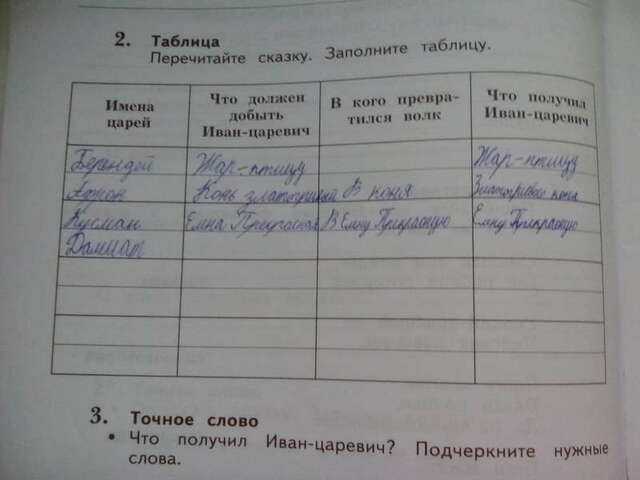 2. Таблица
Перечитайте сказку. Заполните таблицу.
Имена царей
Что должен добыть Иван-царевич
В кого превра-тился волк
Что получил Иван-царевич
Берендей Жар-птицу Жар-птицу
Афрон Конь златогривый В коня Златогривый коня
Кусман Елена Прекрасная В Елену Прекрасную Елену Прекрасную
Далмат
3. Точное слово
• Что получил Иван-царевич? Подчеркните нужные
слова.